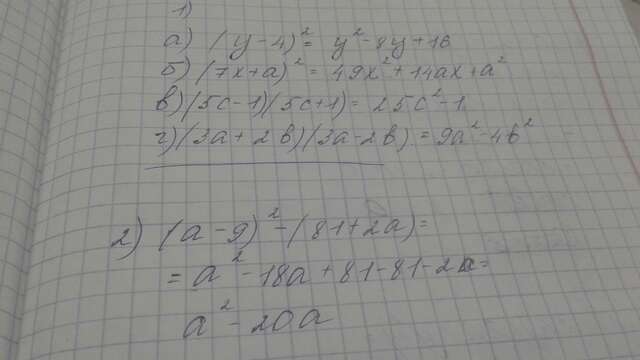 1)
а) (y-4)² = y²-8y+16
б) (7x+a)² = 49x²+14ax+a²
в) (5c-1)(5c+1) = 25c²-1
г) (3a+2b)(3a-2b) = 9a²-4b²
2) (a-9)²-(81+2a)=
= a²-18a+81-81-2a=
a²-20a